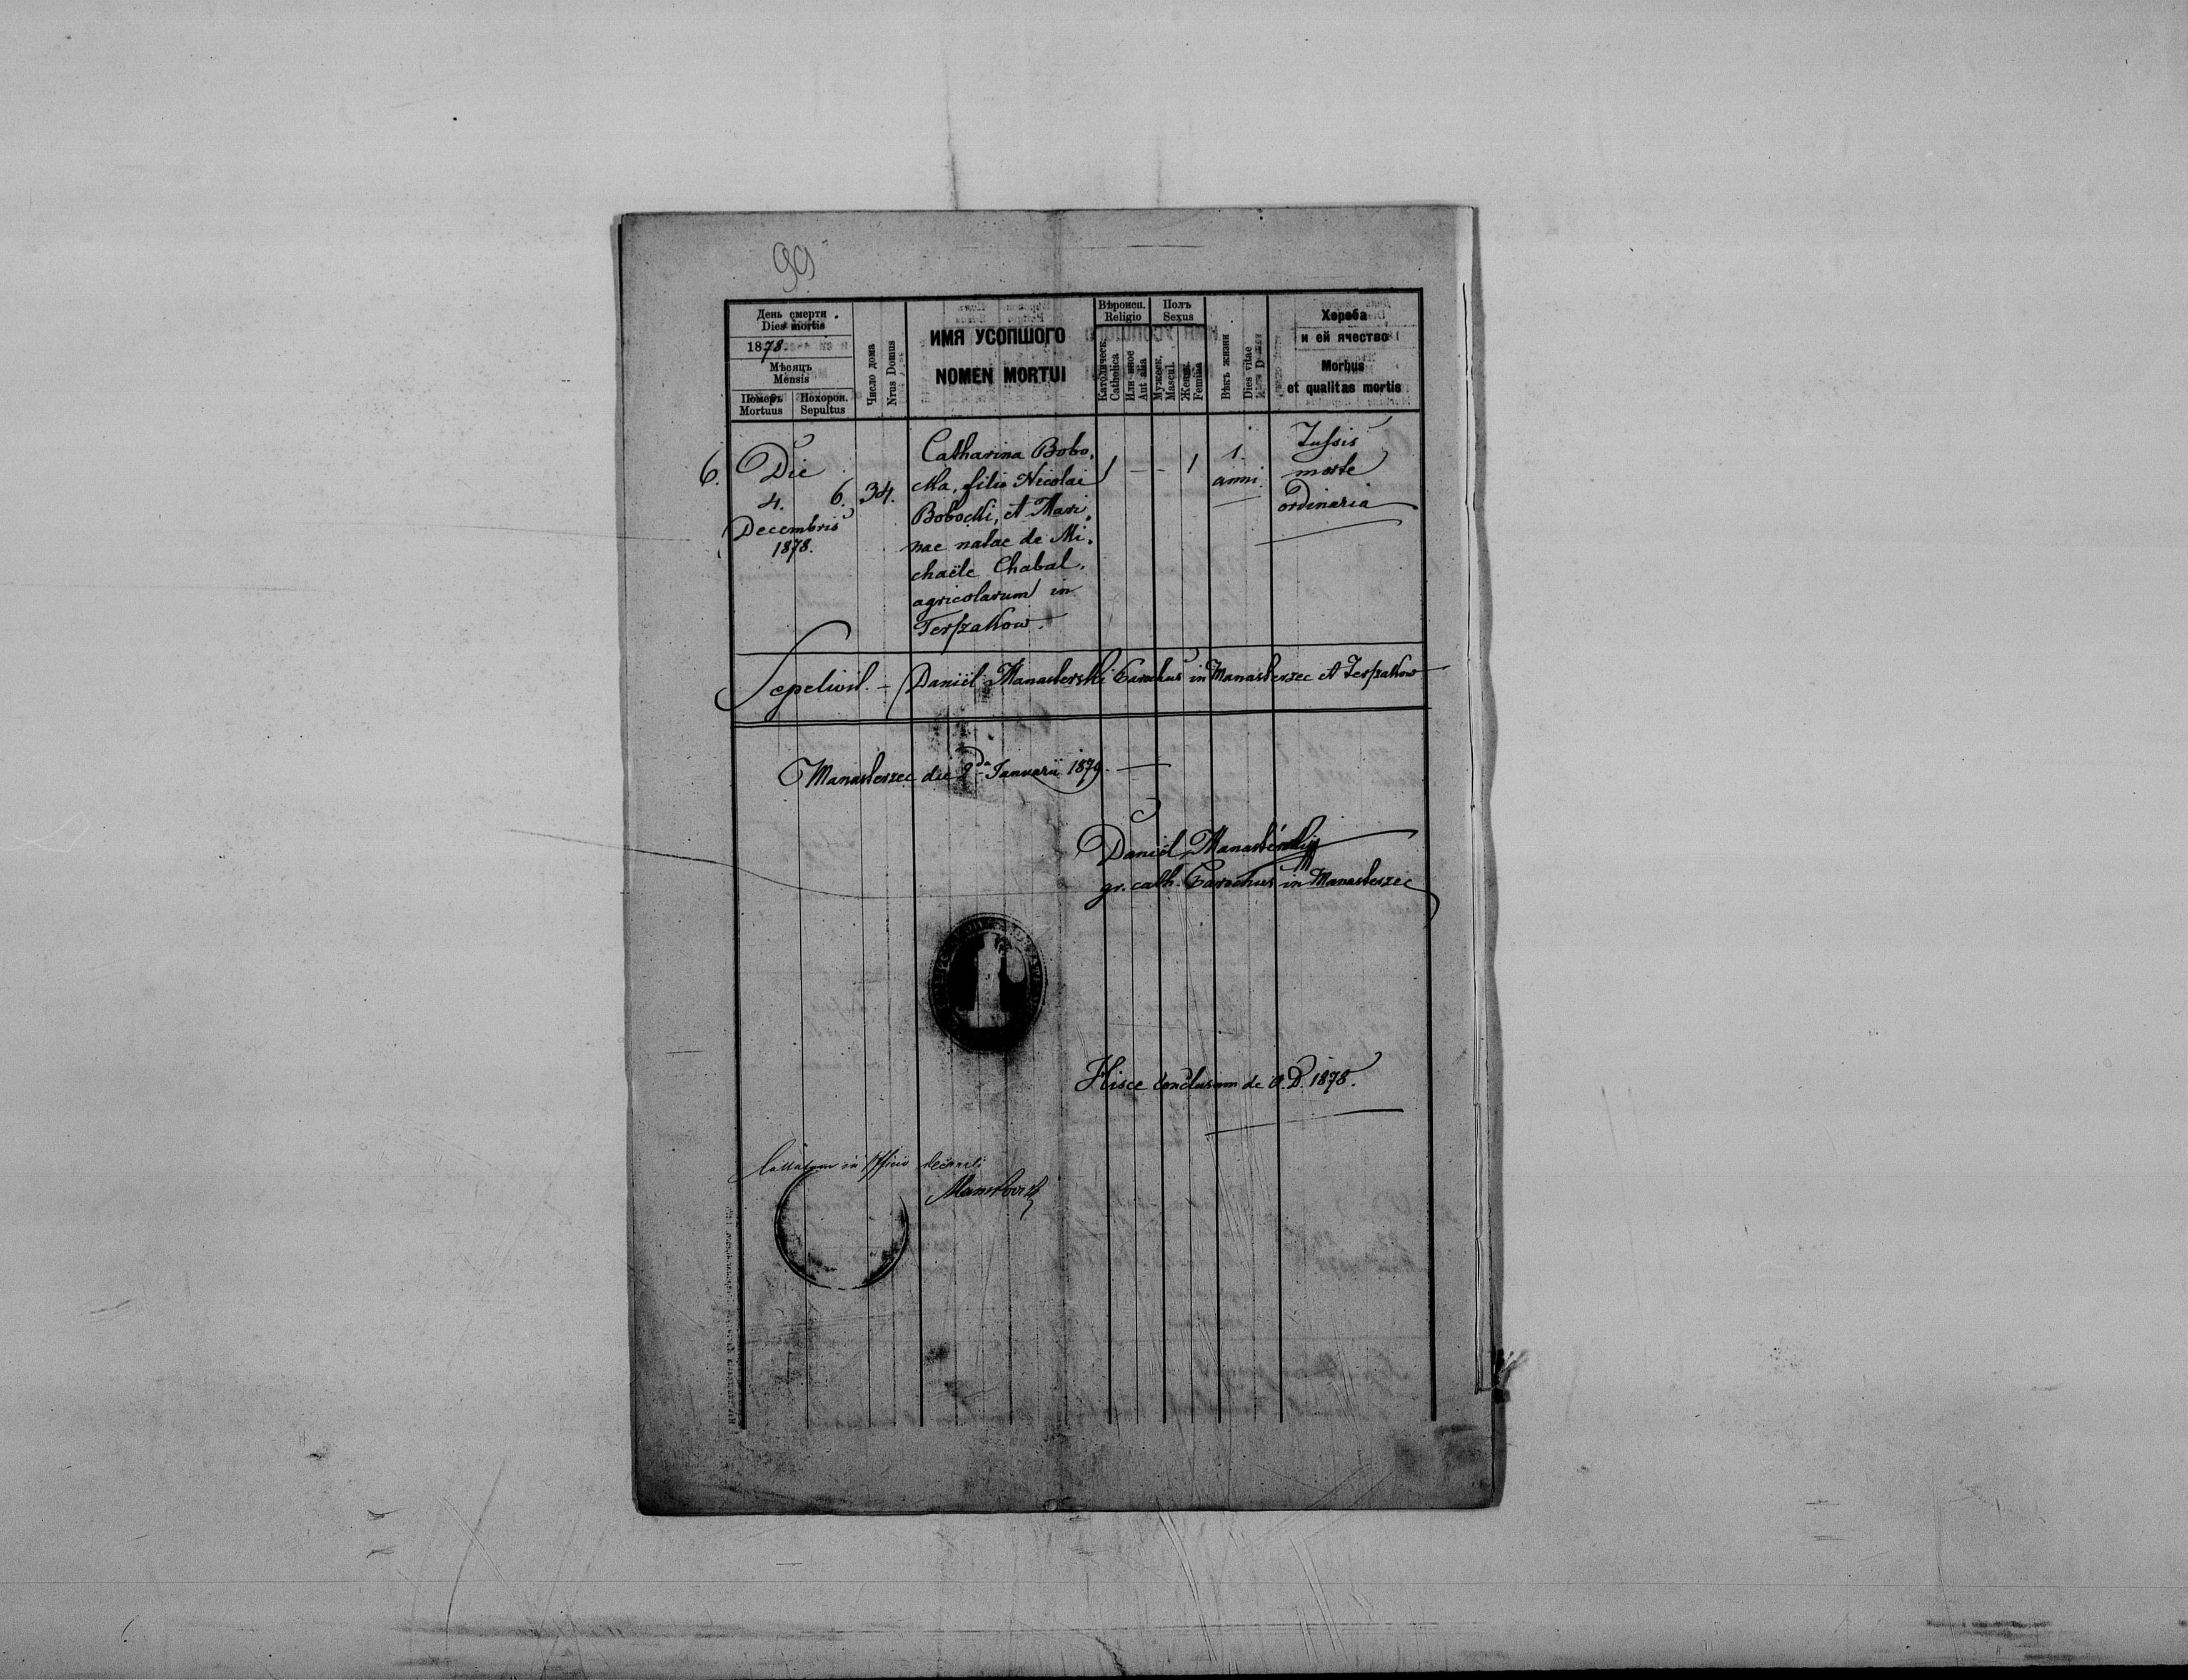 99
День смерти
Dies mortis
1878.
Мѣсяць
Mensis
Померъ Mortuus
Похорон. Sepultus
Число дома
Nrus Domus
ИМЯ УСОПШОГО
NOMEN MORTUI
Вѣроисп.
Religio
Католическ.
Catholica
Или иное
Aut alia
Полъ
Sexus
Мужеск.
Mascul.
Женск.
Femina
Вѣкъ жизни
Dies vitae
Хороба
и ей ячество
Morbus
et qualitas mortis
6. Die
4. 6. 34.
Decembris
1878.
Catharina Bobo,
cka, filia Nicolai
Bobocki, et Mari,
nae natae de Mi,
chaële Chabal,
agricolarum in
Terszakow.
1 – – 1
1.
anni.
Tussis
morte
ordinaria
Sepelivit. – Daniël Manasterski Parochus in Manasterzec et Terszakow
Manasterzec die 2da Januarii 1879.
Daniël Manasterskij
gr. cath. Parochus in Manasterzec
Hisce conclusum de A.D. 1878.
Collatum in Officio decanali